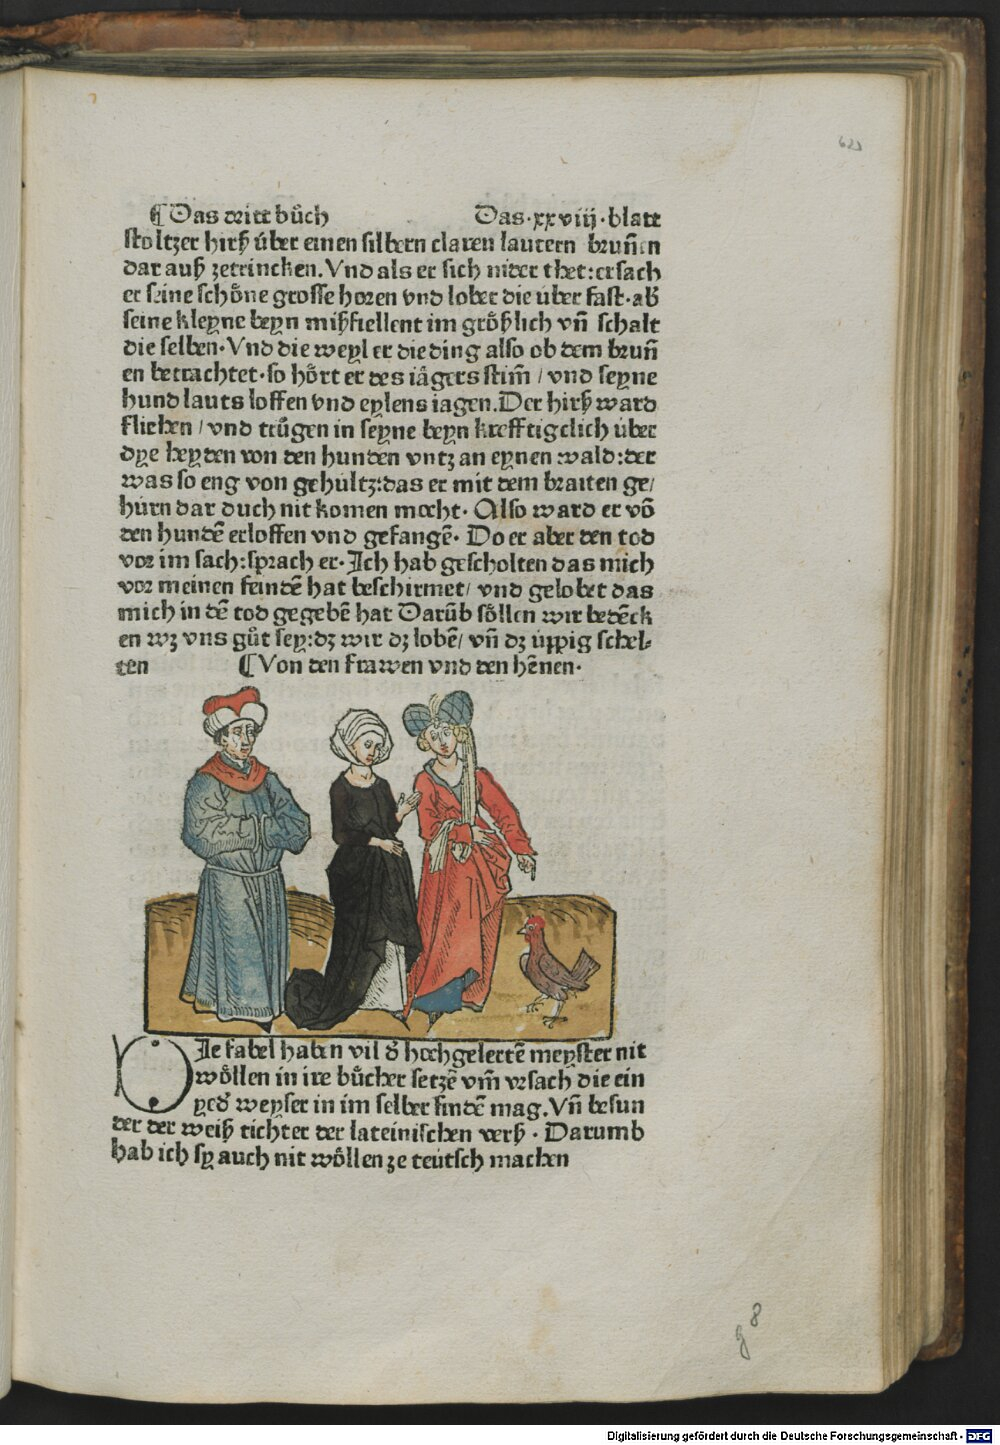 623
¶ Das dritt bůch Das·xxviij·blatt
stoltzer hirß über einen silbern claren lautern brunnen
dar auß zetrincken. Vnd als er sich nider thet: ersach
er seine schöne grosse horen vnd lobet die über fast· ab̕
seine kleyne beyn mißfiellent im größlich vn̄ schalt
die selben· Vnd die weyl er die ding also ob dem brun̄
en betrachtet· so hört er des iägers stim̄ / vnd seyne
hund lauts loffen vnd eylens iagen. Der hirß ward
fliehen / vnd trůgen in seyne beyn krefftigclich über
dye heyden von den hunden vntz an eynen wald: der
was so eng von gehültz: das er mit dem braiten ge/
hürn dar duch nit komen mocht· Also ward er vō
den hundē erloffen vnd gefangē· Do er aber den tod
vor im sach: sprach er· Ich hab gescholten das mich
vor meinen feindē hat beschirmet/ vnd gelobet das
mich in dē tod gegebē hat Darūb söllen wir bedēck
en wz vns gůt sey: dz wir dz lobē/ vn̄ dz üppig schel-
ten ¶ Von den frawen vnd den hēnen·
DJe fabel haben vil d̕ hochgelertē meyster nit
wöllen in ire bůcher setzē vm̄ vrsach die ein
yed̕ weyser in im selber findē mag. Vn̄ besun
der der weiß richter der lateinischen verß· Darumb
hab ich sy auch nit wöllen ze teutsch machen
g 8
Digitalisierung gefördert durch die Deutsche Forschungsgemeinschaft - DFG